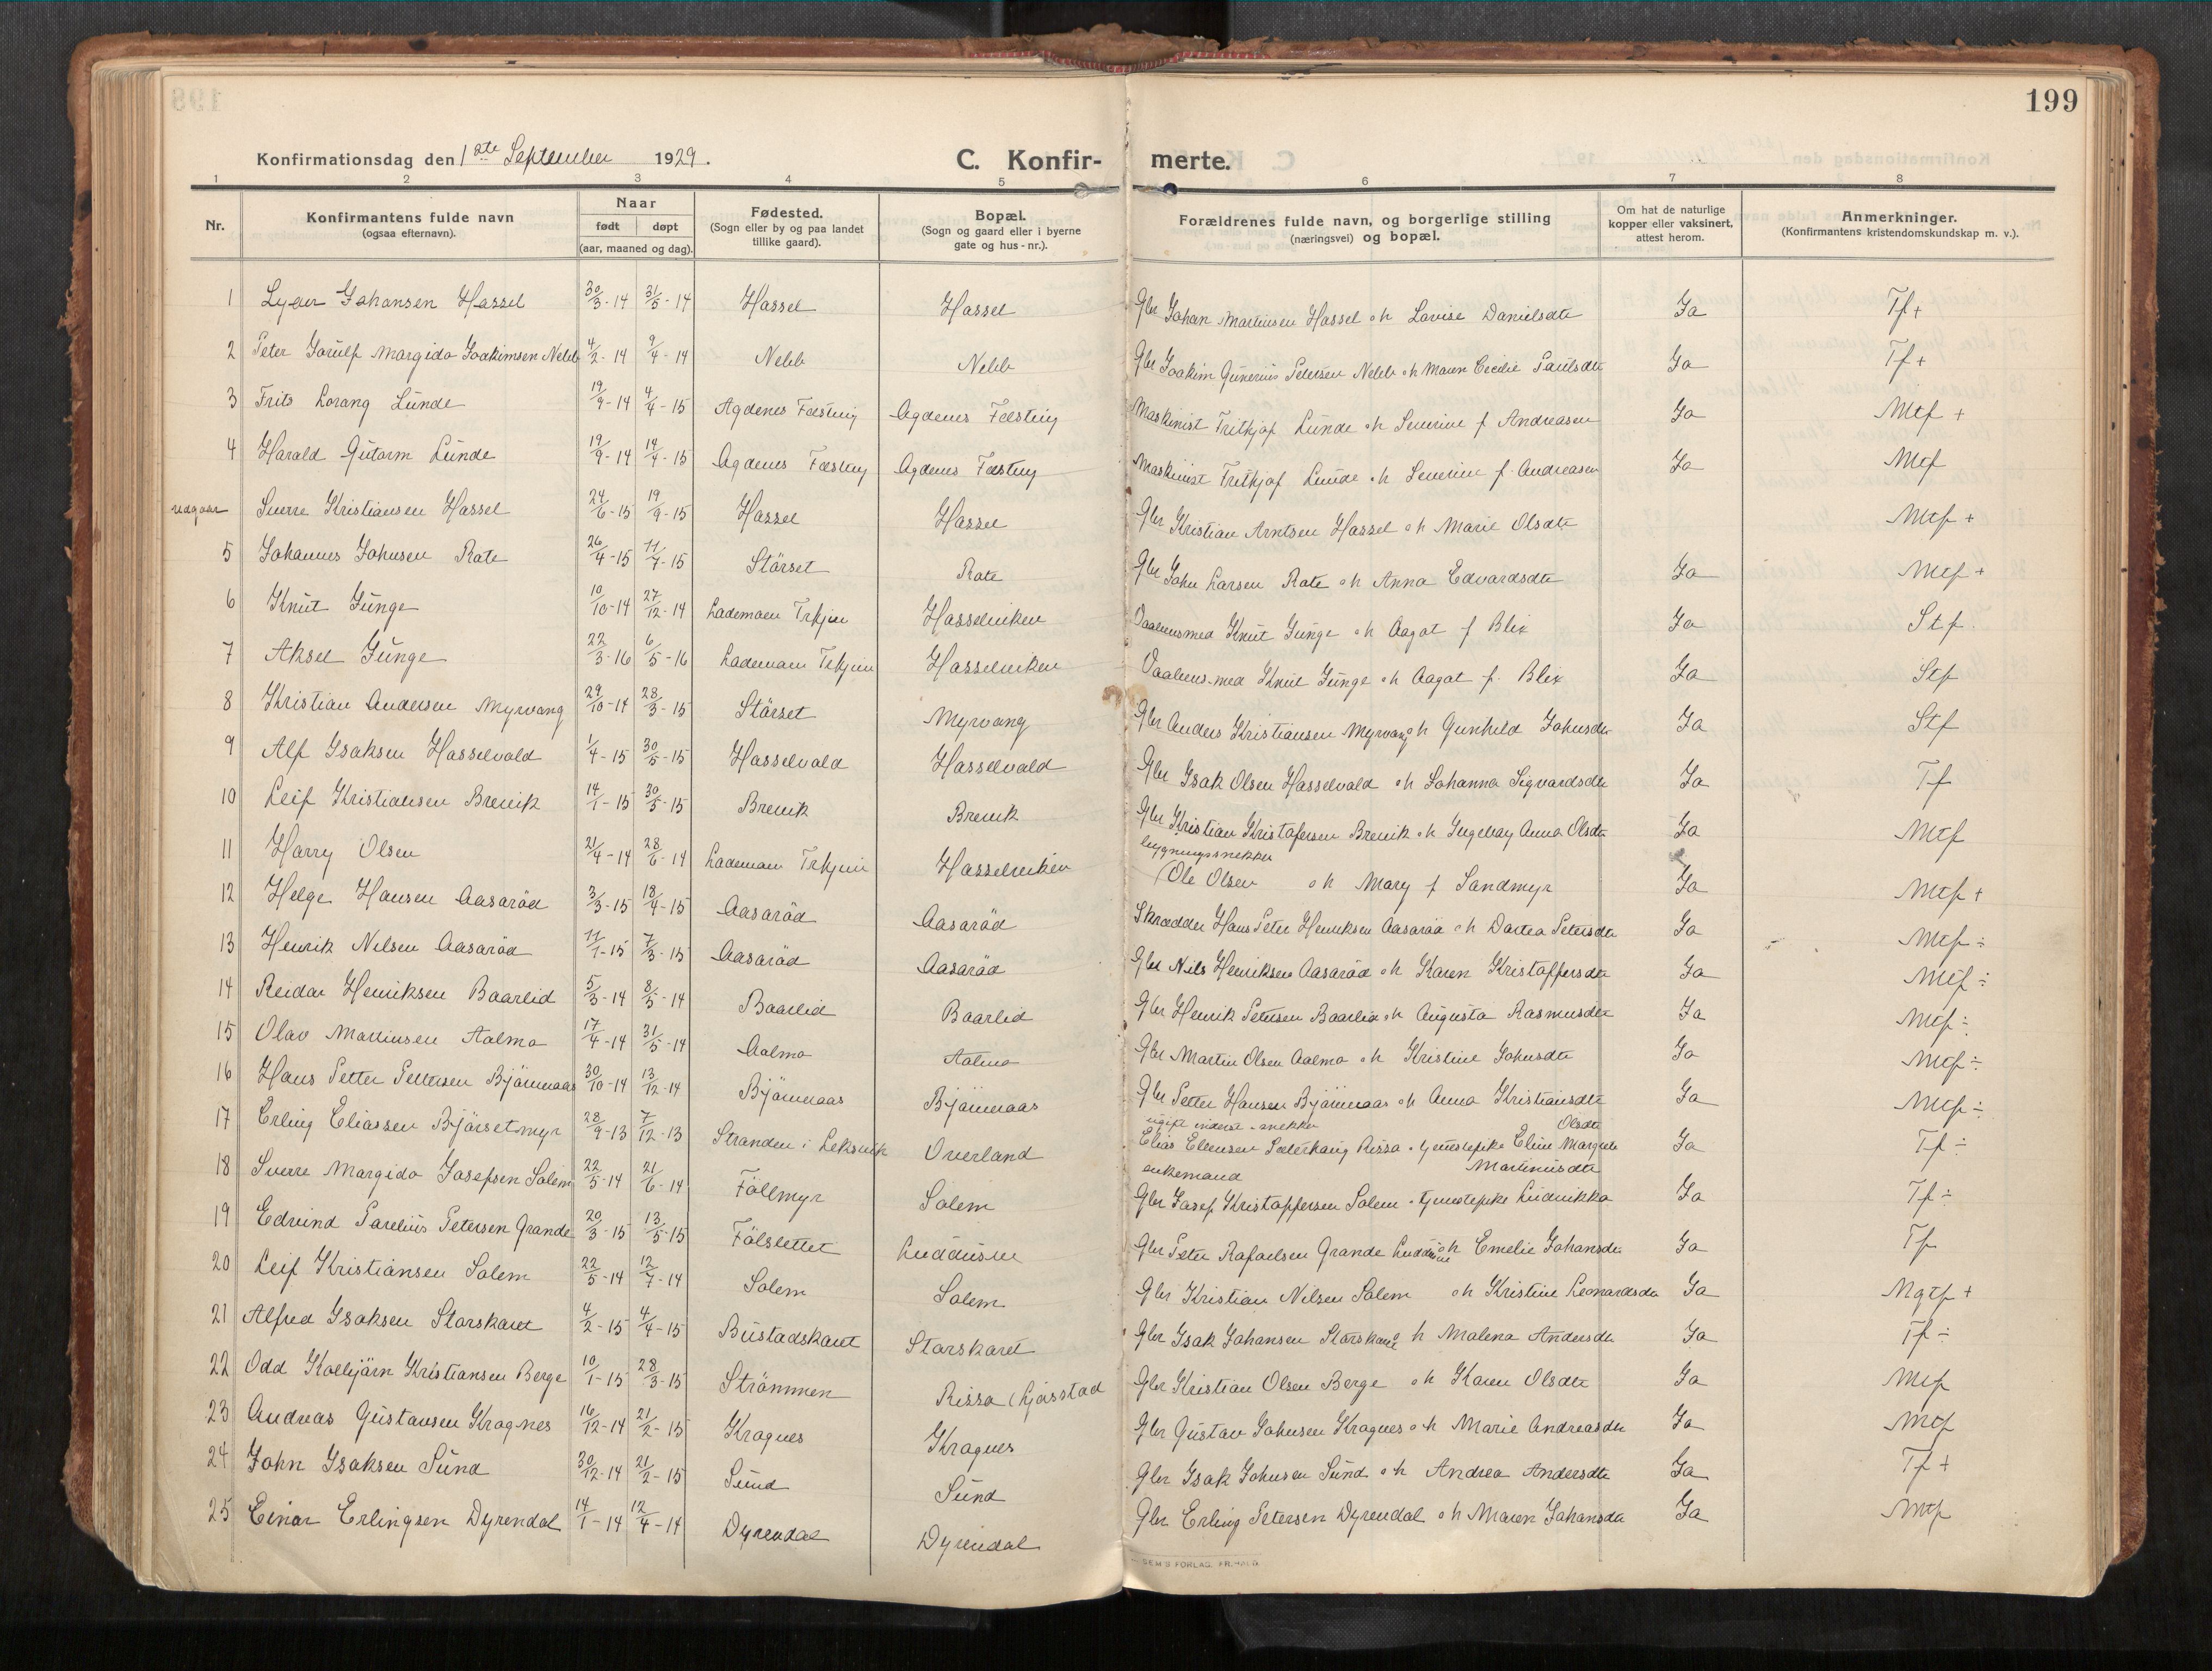 199
Konfirmationsdag den 1ste September 1929.
C. Konfir- merte.
1 2 3 4 5 6 7 8
Nr.
Konfirmantens fulde navn
(ogsaa efternavn).
Naar
født døpt
(aar, maaned og dag).
Fødested.
(Sogn eller by og paa landet
tillike gaard).
Bopæl.
(Sogn og gaard eller i byerne
gate og hus-nr.).
Forældrenes fulde navn, og borgerlige stilling
(næringsvei) og bopæl.
Om hat de naturlige
kopper eller vaksinert,
attest herom.
Anmerkninger.
(Konfirmantens kristendomskundskap m. v.).
1 Johansen Hassel 30/3-14 31/5-14 Hassel Hassel Gbr Johan Martinsen Hassel oh Lovise Danielsdtr Ja Tf+
2 Peter Margido Joakimsen Nebb 4/2-14 9/4-14 Nebb Nebb Gbr Joakim Gunerius Petersen Nebb oh Maren Cecilie Paulsdtr Ja Tf+
3 Frits Lorang Lunde 19/9-14 4/4-15 Agdenes Fæstning Agdenes Fæstning Maskinist Fritkjof Lunde oh Severine f Andreasen Ja Mtf +
4 Harald Gutorm Lunde 19/9-14 Agdenes Fæstning Agdenes Fæstning Maskinist Fritkjof Lunde oh Severine f. Andreasen Ja Mtf
udgaar Sverre Kristiansen Hassel 24/6-15 19/9-15 Hassel Hassel Gbr Kristian Arntsen Hassel oh Marie Olsdtr Mtf +
5 Johannes Johnsen Rate 26/4-15 11/7-15 Störset Rate Gbr John Larsen Rate oh Anna Edvardsdtr Ja Mtf +
6 Knut Junge 10/10-14 27/12-14 Lademoen Trhjem Hasselviken Knut Junge oh Aagot f Blix Ja Stf.
7 Aksel Junge 22/3-16 6/5-16 Lademoen Trhjem Hasselviken Knut Junge oh Aagot f. Blix Ja Stf
8 Kristian Andersen Myrvang 29/10-14 28/3-15 Störset Myrvang Gbr Anders Kristiansen Myrvang oh Gunhild Johnsdtr Ja Stf
9 Alf Isaksen Hasselvold 1/4-15 30/5-15 Hasselvold Hasselvold Gbr Isak Olsen Hasselvold oh Johanna Sigvardsdtr Ja Tf
10 Leif Kristiansen Brevik 14/1-15 30/5-15 Brevik Brevik Gbr Kristian Kristofersen Brevik oh Ingeborg Anna Olsdtr Ja Mtf
11 Harry Olsen 21/4-14 28/6-14 Lademoen Trhjem Hasselviken bygningssnekker
Ole Olsen oh Mary f Sandmyr Ja Mtf +
12 Helge Hansen Aasaröd 3/3-15 18/4-15 Aasaröd Aasaröd Skrædder Hans Peter Henriksen Aasaröd oh Dortea Petersdtr Ja Mtf ÷
13 Henrik Nilsen Aasaröd 11/1-15 7/3-15 Aasaröd Aasaröd Gbr Nils Henriksen Aasaröd oh Karen Kristoffersdtr Ja Mtf ÷
14 Reidar Henriksen Baarlid 5/3-14 8/5-14 Baarlid Baarlid Gbr Henrik Petersen Baarlid oh Augusta Rasmusdtr Ja Mtf ÷
15 Olav Martinsen Aalmo 17/4-14 31/5-14 Aalmo Aalmo Gbr Martin Olsen Aalmo oh Kristine Johnsdtr Ja Mtf ÷
16 Hans Petter Pettersen Björnaas 30/10-14 13/12-14 Björnaas Björnaas Gbr Petter Hansen Björnaas oh Anna Kristiansdtr Ja Mtf ÷
17 Erling Eliassen Björsetmyr 28/9-13 7/12-13 Stranden i Leksvik Overland ugift inderst - snekker Olsdtr
Elias Rissa o tjenestepike Eline Margrete Ja Tf ÷
18 Sverre Margido Josefsen Solem 22/5-14 21/6-14 Föllmyr Solem enkemand Martinusdtr
Gbr Josef Kristoffersen Solem o tjenestepike Ludvikka Ja Tf ÷
19 Edvind Parelius Petersen Grande 20/3-15 13/5-15 Fölslettet Gbr Peter Rafaelsen Grande oh Emelie Johansdtr Ja Tf
20 Leif Kristiansen Solem 22/5-14 12/7-14 Solem Solem Gbr Kristian Nilsen Solem oh Kristine Leonardsdtr Ja Mgtf +
21 Alfred Isaksen Storskaret 4/2-15 4/4-15 Bustadskaret Storskaret Gbr Isak Johansen Storskaret oh Malena Andersdtr Ja Tf ÷
22 Odd Kolbjörn Kristiansen Berge 10/1-15 28/3-15 Strömmen Rissa Gbr Kristian Olsen Berge oh Karen Olsdtr Ja Mtf
23 Andreas Gustavsen Kragnes 16/12-14 21/2-15 Kragnes Kragnes Gbr Gustav Johnsen Kragnes oh Marie Andreasdtr Ja Mtf
24 John Isaksen Sund 30/12-14 21/2-15 Sund Sund Gbr Isak Johnsen Sund oh Andrea Andersdtr Ja Tf +
25 Einar Erlingsen Dyrendal 14/1-14 12/4-14 Dyrendal Dyrendal Gbr Erling Petersen Dyrendal oh Maren Johansdtr Ja Mtf
SEM'S FORLAG, FR.HALD